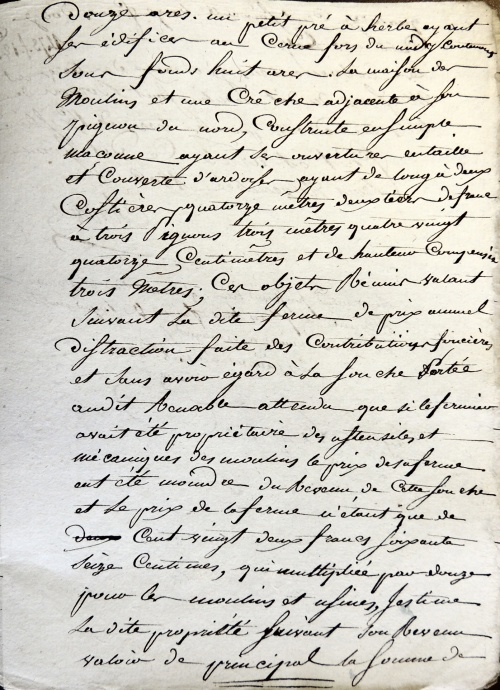 Douze ares. un petit pré à herbe ayant
ses édifices au Cerne fors du midy, contenant
sous fonds huit ares. La maison des
Moulins et une Crêche adjacente à son
pignon du nord, Construite en simple
maconne ayant ses ouvertures en taille
et Couverte d'ardoises, ayant de long à deux
Costieres, quatorze mêtres deux tiers de franc
à trois Pignons trois mêtres quatre vingt
quatorze, Centimêtres et de hauteur Compensée
trois Mêtres; Ces objets Réunis valant
suivant La dite ferme de prix annuel
distraction faite des Contributions foncières
et sans avoir égard à La souche Portée
audit Renable attendu que si le fermier
avait été propriétaire des ustensiles et
mécaniques des moulins le prix de sa ferme
eut été moindre du Revenu de Cette souche
et Le prix de la ferme n'étant que de
deux Cent vingt deux francs soixante
seize Centimes, qui multipliée par douze
pour les moulins et usines, J'estime
La dite propriété suivant son Revenu
valoir de principal la somme de